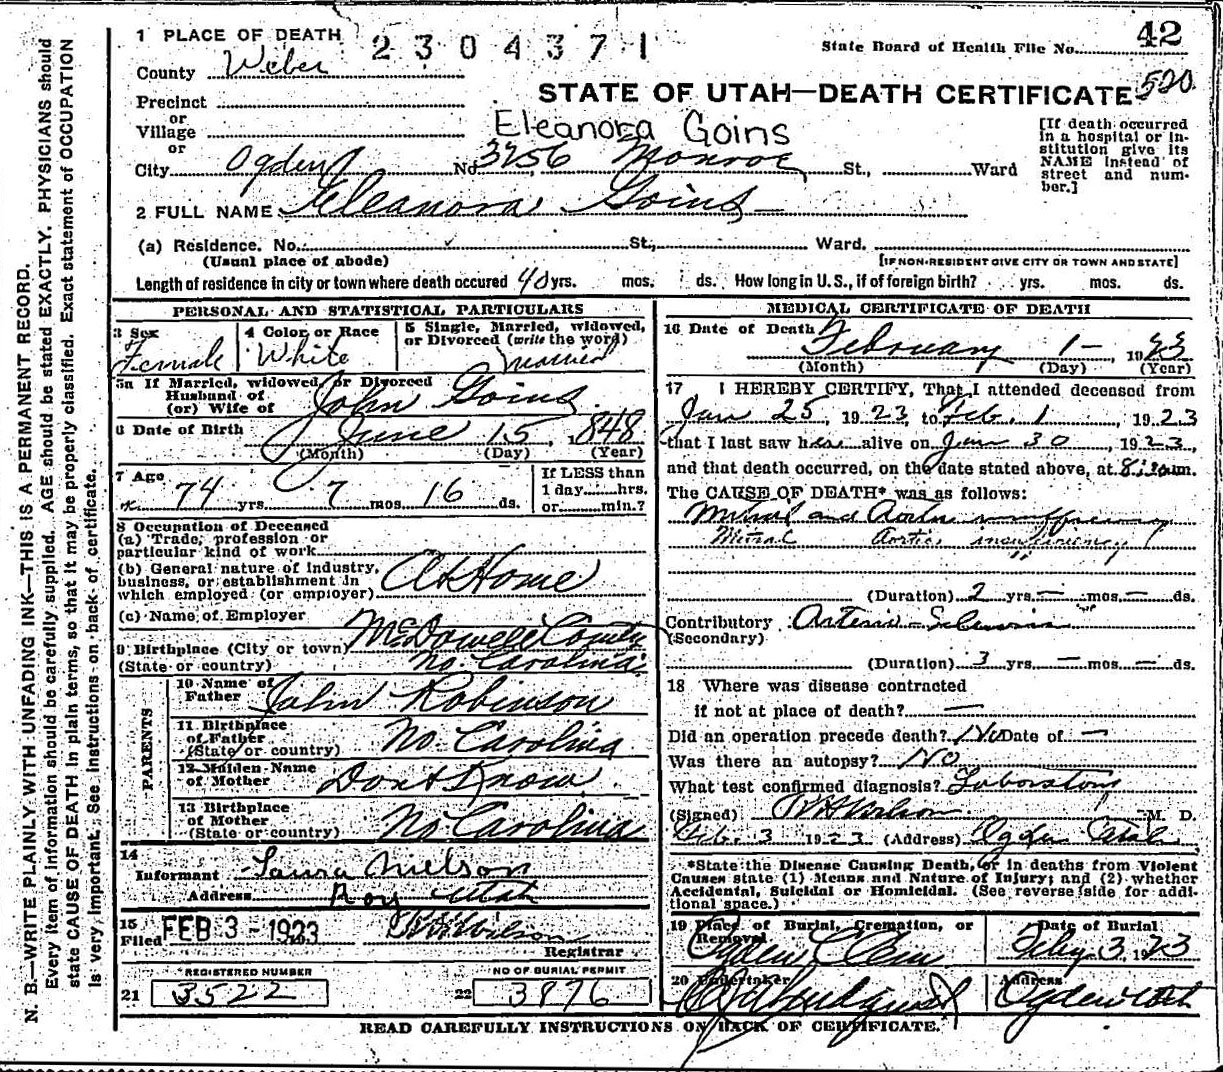 1 PLACE OF DEATH
2304371
State Board of Health File No. 42
County Weber
STATE OF UTAH—DEATH CERTIFICATE 520
Precinct
or
Village
Eleanora Goins
or
City Ogden No 3256 Monroe St., Ward
[If death occurred in a hospital or institution give its NAME instead of street and number.]
2 FULL NAME Eleanora Goins
(a) Residence. No. St., Ward.
(Usual place of abode) [IF NON-RESIDENT GIVE CITY OR TOWN AND STATE]
Length of residence in city or town where death occured 40 yrs. mos. ds. How long in U.S., if of foreign birth? yrs. mos. ds.
PERSONAL AND STATISTICAL PARTICULARS
3 Sex Female
4 Color or Race White
5 Single, Married, widowed,
or Divorced (write the word)
Married
5a If Married, widowed, or Divorced
Husband of
(or) Wife of John Goins
6 Date of Birth June 15, 1848
(Month) (Day) (Year)
7 Age
74 yrs 7 mos 16 ds.
If LESS than
1 day hrs.
or min.?
8 Occupation of Deceased
(a) Trade, profession or
particular kind of work
(b) General nature of industry,
business, or establishment in
which employed (or employer)
At Home
(c) Name of Employer
9 Birthplace (City or town) McDowell County
(State or country) No. Carolina
PARENTS
10 Name of
Father John Robinson
11 Birthplace
of Father
(State or country) No. Carolina
12 Maiden Name
of Mother Dont Know
13 Birthplace
of Mother
(State or country) No Carolina
14
Informant Laura Nielson
Address Roy Utah
15
Filed FEB 3 - 1923 Wilson
Registrar
REGISTERED NUMBER
21 3522
NO OF BURIAL PERMIT
22 3876
MEDICAL CERTIFICATE OF DEATH
16 Date of Death
February 1 - 1923
(Month) (Day) (Year)
17 I HEREBY CERTIFY, That I attended deceased from
Jan 25, 1923, to Feb. 1, 1923
that I last saw her alive on Jan 30, 1923,
and that death occurred, on the date stated above, at m.
The CAUSE OF DEATH* was as follows:
Mitral and Aortic insufficiency
Mitral Aortic insufficiency
(Duration) 2 yrs. — mos. — ds.
Contributory Arterio-Sclerosis
(Secondary)
(Duration) 3 yrs. — mos. — ds.
18 Where was disease contracted
if not at place of death? —
Did an operation precede death? No Date of —
Was there an autopsy? No
What test confirmed diagnosis? Laboratory
(Signed) Wilson M. D.
Feb. 3 1923 (Address) Ogden Utah
*State the Disease Causing Death, or in deaths from Violent
Causes state (1) Means and Nature of Injury; and (2) whether
Accidental, Suicidal or Homicidal. (See reverse side for addi-
tional space.)
19 Place of Burial, Cremation, or
Removal
Ogden Cem
Date of Burial
Feby. 3 1923
20 Undertaker
Address
Ogden Utah
READ CAREFULLY INSTRUCTIONS ON BACK OF CERTIFICATE.
N. B.—WRITE PLAINLY WITH UNFADING INK—THIS IS A PERMANENT RECORD.
Every item of information should be carefully supplied. AGE should be stated EXACTLY. PHYSICIANS should
state CAUSE OF DEATH in plain terms, so that it may be properly classified. Exact statement of OCCUPATION
is very important. See instructions on back of certificate.